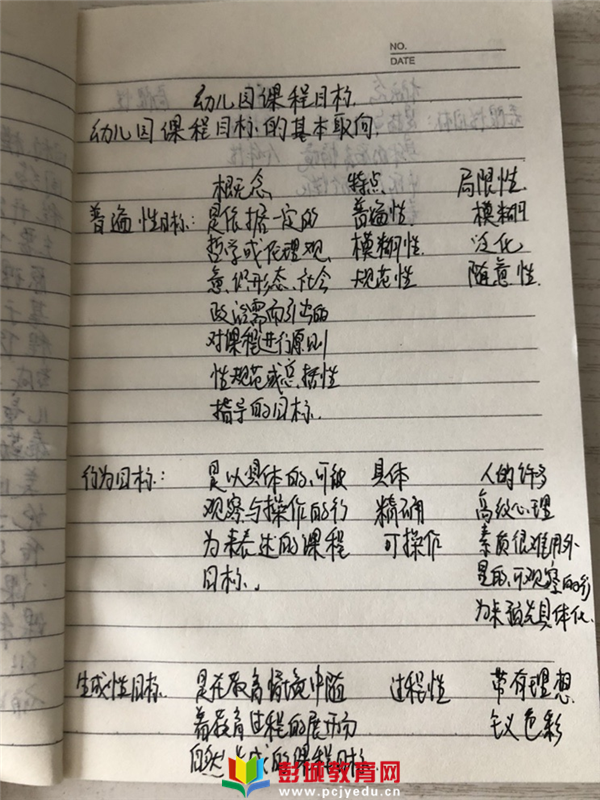 NO.
DATE
幼儿园课程目标.
幼儿园课程目标的基本取向.
概念 特点 局限性.
普遍性目标: 是依据一定的 普遍性. 模糊
哲学或伦理观, 模糊性. 泛化
意识形态、社会 规范性 随意性.
政治需而引出的
对课程进行原则
性规范或总括性
指导的目标.
行为目标: 是以具体的、可被 具体 人的许多
观察与操作的行 精确 高级心理
为来表述的课程 可操作 素质很难用外
目标. 显的、可观察的行
为来预先具体化.
生成性目标. 是在教育情境中随 过程性 带有理想
着教育过程的展开而 主义色彩
自然生成的课程目标
彭城教育网
www.pcjyedu.cn